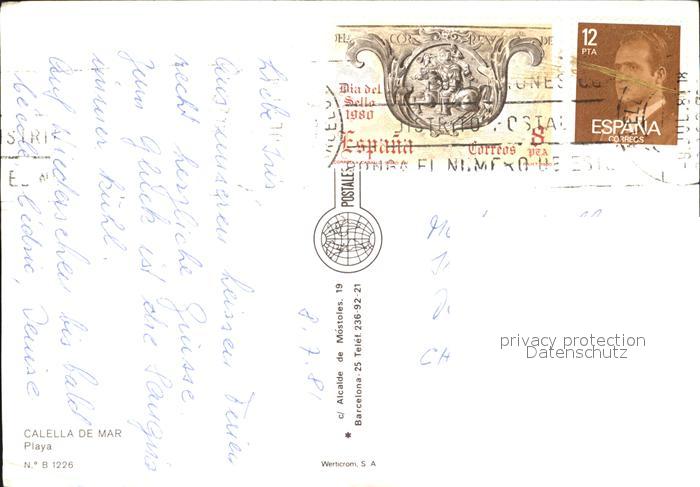 Liebe Iris,
Aus unseren heissen Ferien
recht herzliche Grüsse.
Zum Glück ist die Sangria
immer kühl.
Auf wiedersehen bis bald
Denise
8.7.81
CALELLA DE MAR
Playa
N.° B 1226
POSTALES
c/ Alcalde de Móstoles, 19
Barcelona-25 Teléf. 236-92-21
*
Werticrom, S A
Dia del
Sello
1980
España
Correos
8
PTA
12
PTA
ESPAÑA
CORREOS
DISTRITO POSTAL
PONGA EL NUMERO DE
CH
privacy protection
Datenschutz